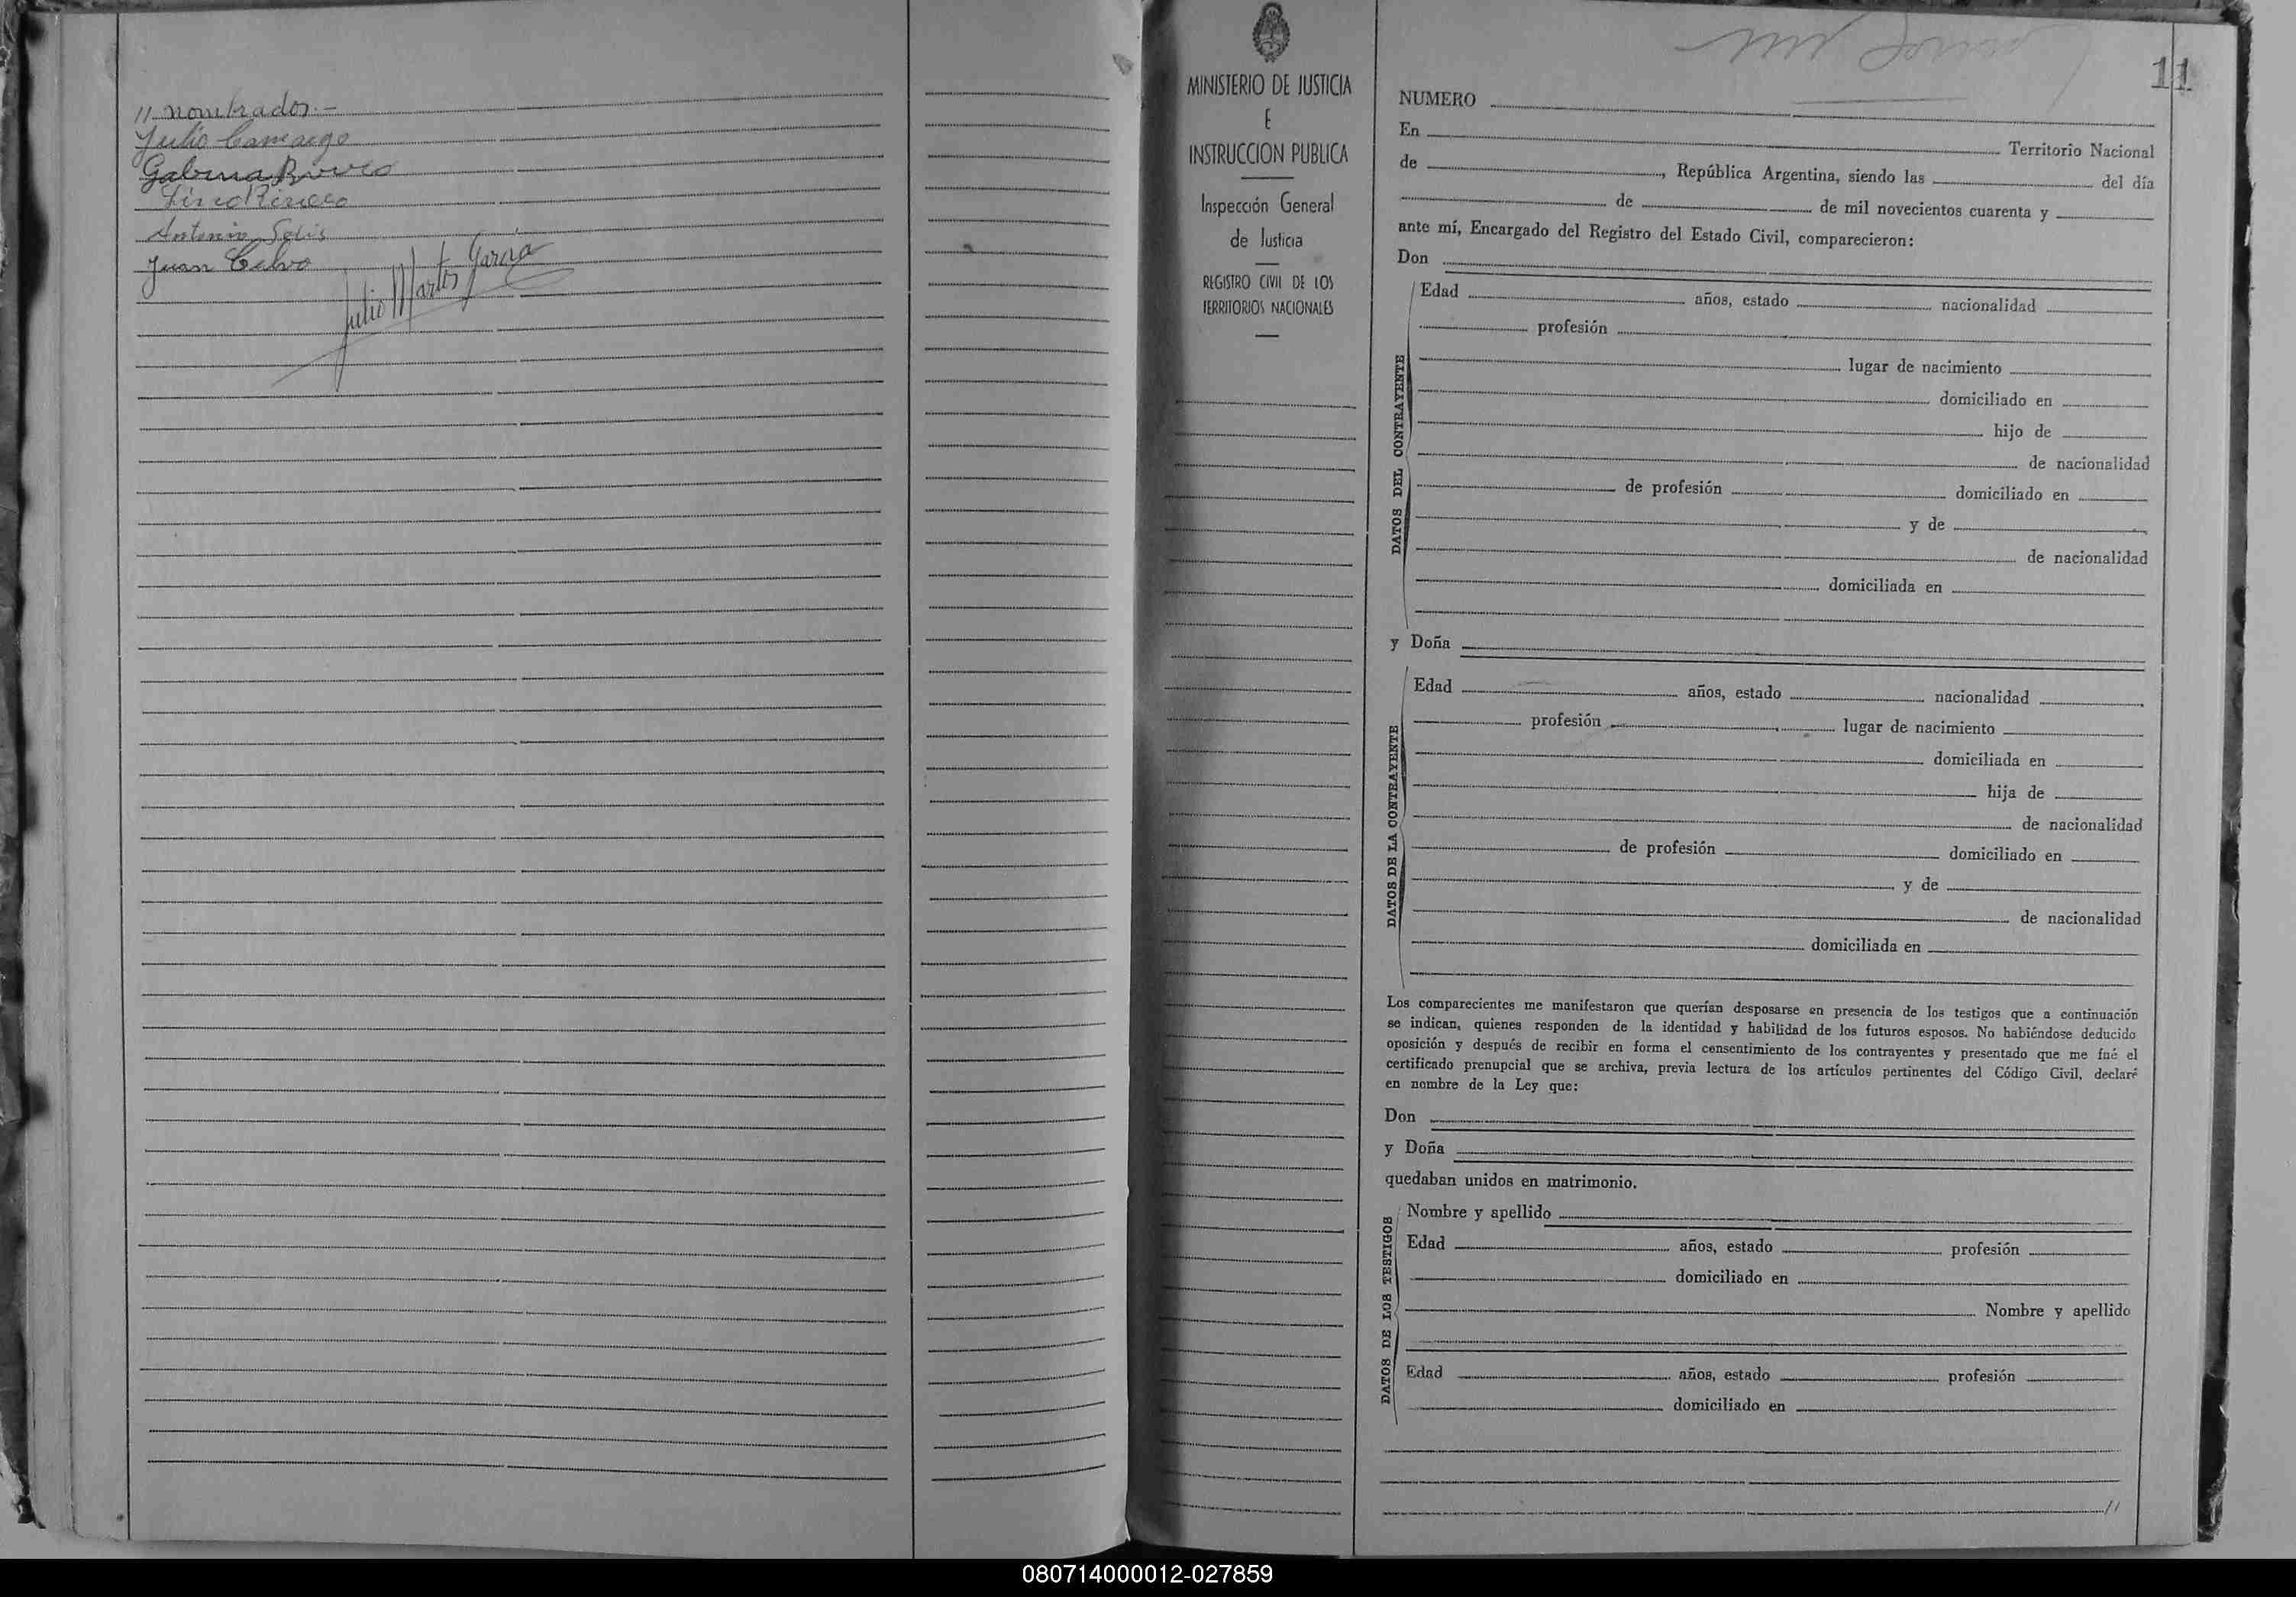 // nombrados.-
Julio Camargo
Gabina Rivero
Lino Rivero
Antonio Solis
Juan Calvo
Julio Martos García
MINISTERIO DE JUSTICIA
E
INSTRUCCION PUBLICA
Inspección General
de Justicia
REGISTRO CIVIL DE LOS
TERRITORIOS NACIONALES
11
NUMERO
En Territorio Nacional
de , República Argentina, siendo las del día
de de mil novecientos cuarenta y
ante mí, Encargado del Registro del Estado Civil, comparecieron:
Don
DATOS DEL CONTRAYENTE
Edad años, estado nacionalidad
profesión
lugar de nacimiento
domiciliado en
hijo de
de nacionalidad
de profesión domiciliado en
y de
de nacionalidad
domiciliada en
y Doña
DATOS DE LA CONTRAYENTE
Edad años, estado nacionalidad
profesión lugar de nacimiento
domiciliada en
hija de
de nacionalidad
de profesión domiciliado en
y de
de nacionalidad
domiciliada en
Los comparecientes me manifestaron que querían desposarse en presencia de los testigos que a continuación
se indican, quienes responden de la identidad y habilidad de los futuros esposos. No habiéndose deducido
oposición y después de recibir en forma el consentimiento de los contrayentes y presentado que me fué el
certificado prenupcial que se archiva, previa lectura de los artículos pertinentes del Código Civil, declaré
en nombre de la Ley que:
Don
y Doña
quedaban unidos en matrimonio.
DATOS DE LOS TESTIGOS
Nombre y apellido
Edad años, estado profesión
domiciliado en
Nombre y apellido
Edad años, estado profesión
domiciliado en
//
080714000012-027859